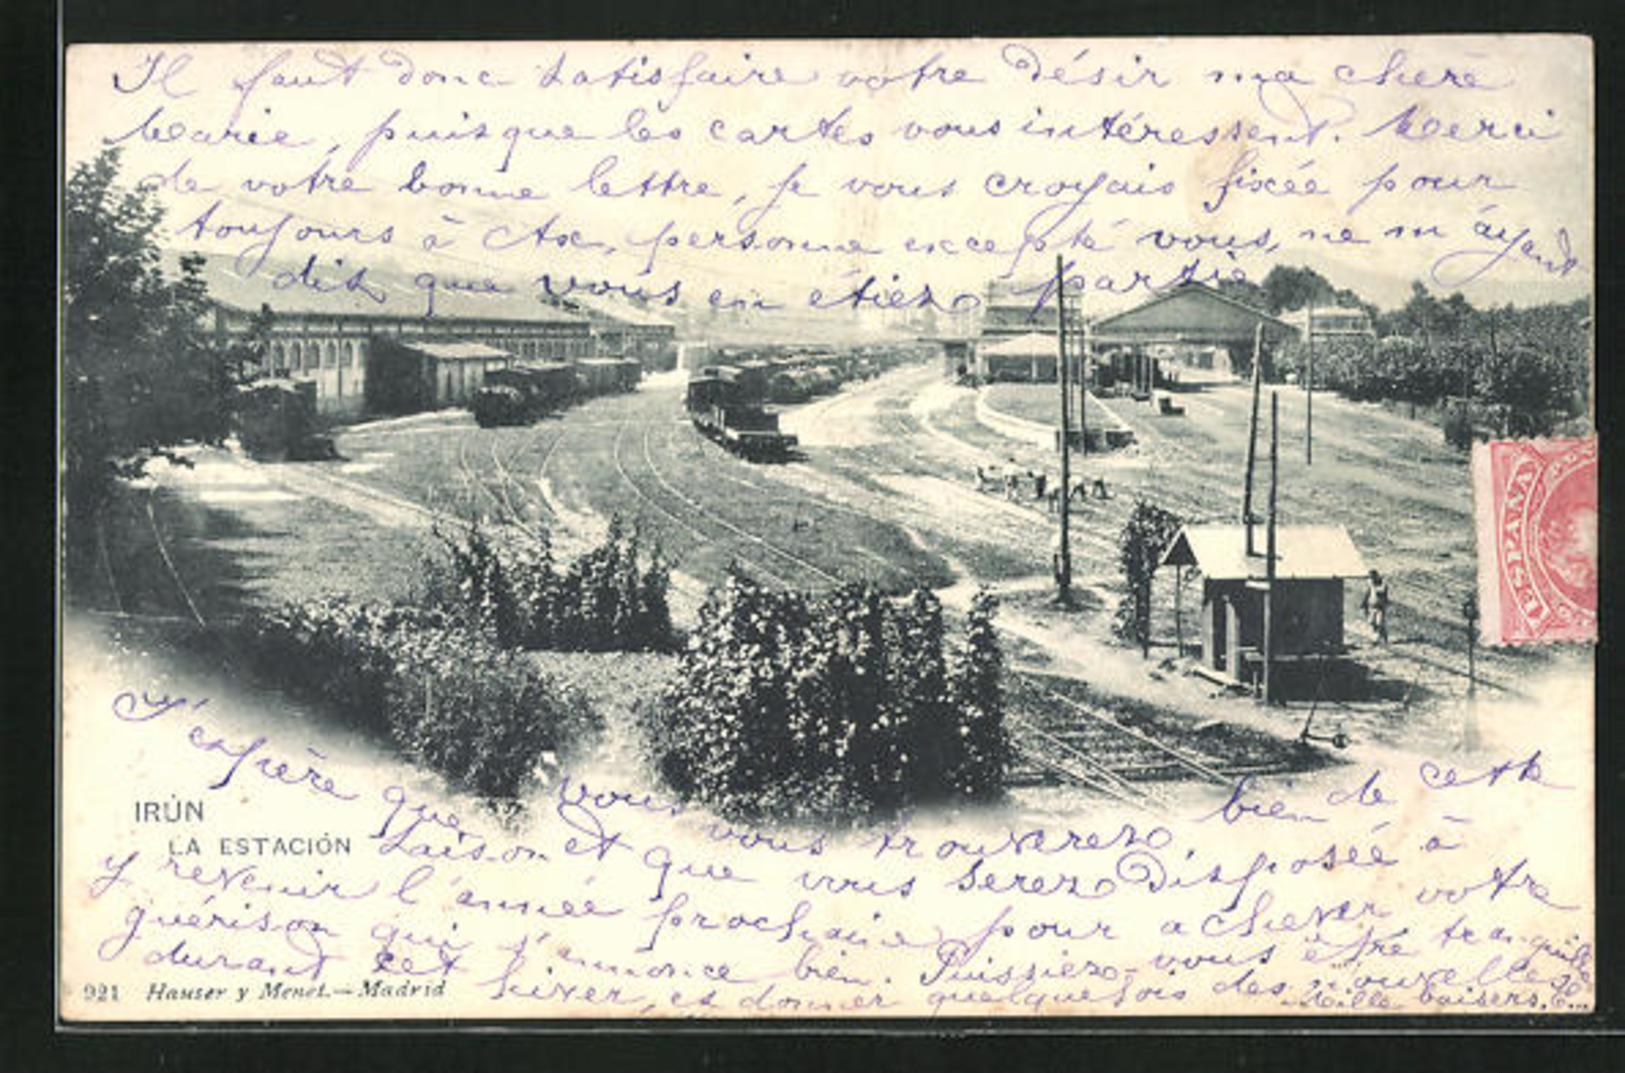 Il faut donc satisfaire votre désir ma chère
Marie, puisque les cartes vous intéressent. Merci
de votre bonne lettre, je vous croyais fixée pour
toujours à Ax, personne excepté vous, ne m'ayant
dit que vous en étiez partie
ESPAÑA
J'espère que vous vous trouverez bien de cette
IRÚN
LA ESTACIÓN
saison et que vous serez disposée à
y revenir l'année prochaine pour achever votre
guérison qui s'annonce bien. Puissiez-vous être tranquille
durant cet hiver, et donner quelquefois des nouvelles.
Mille baisers.
921 Hauser y Menet.—Madrid